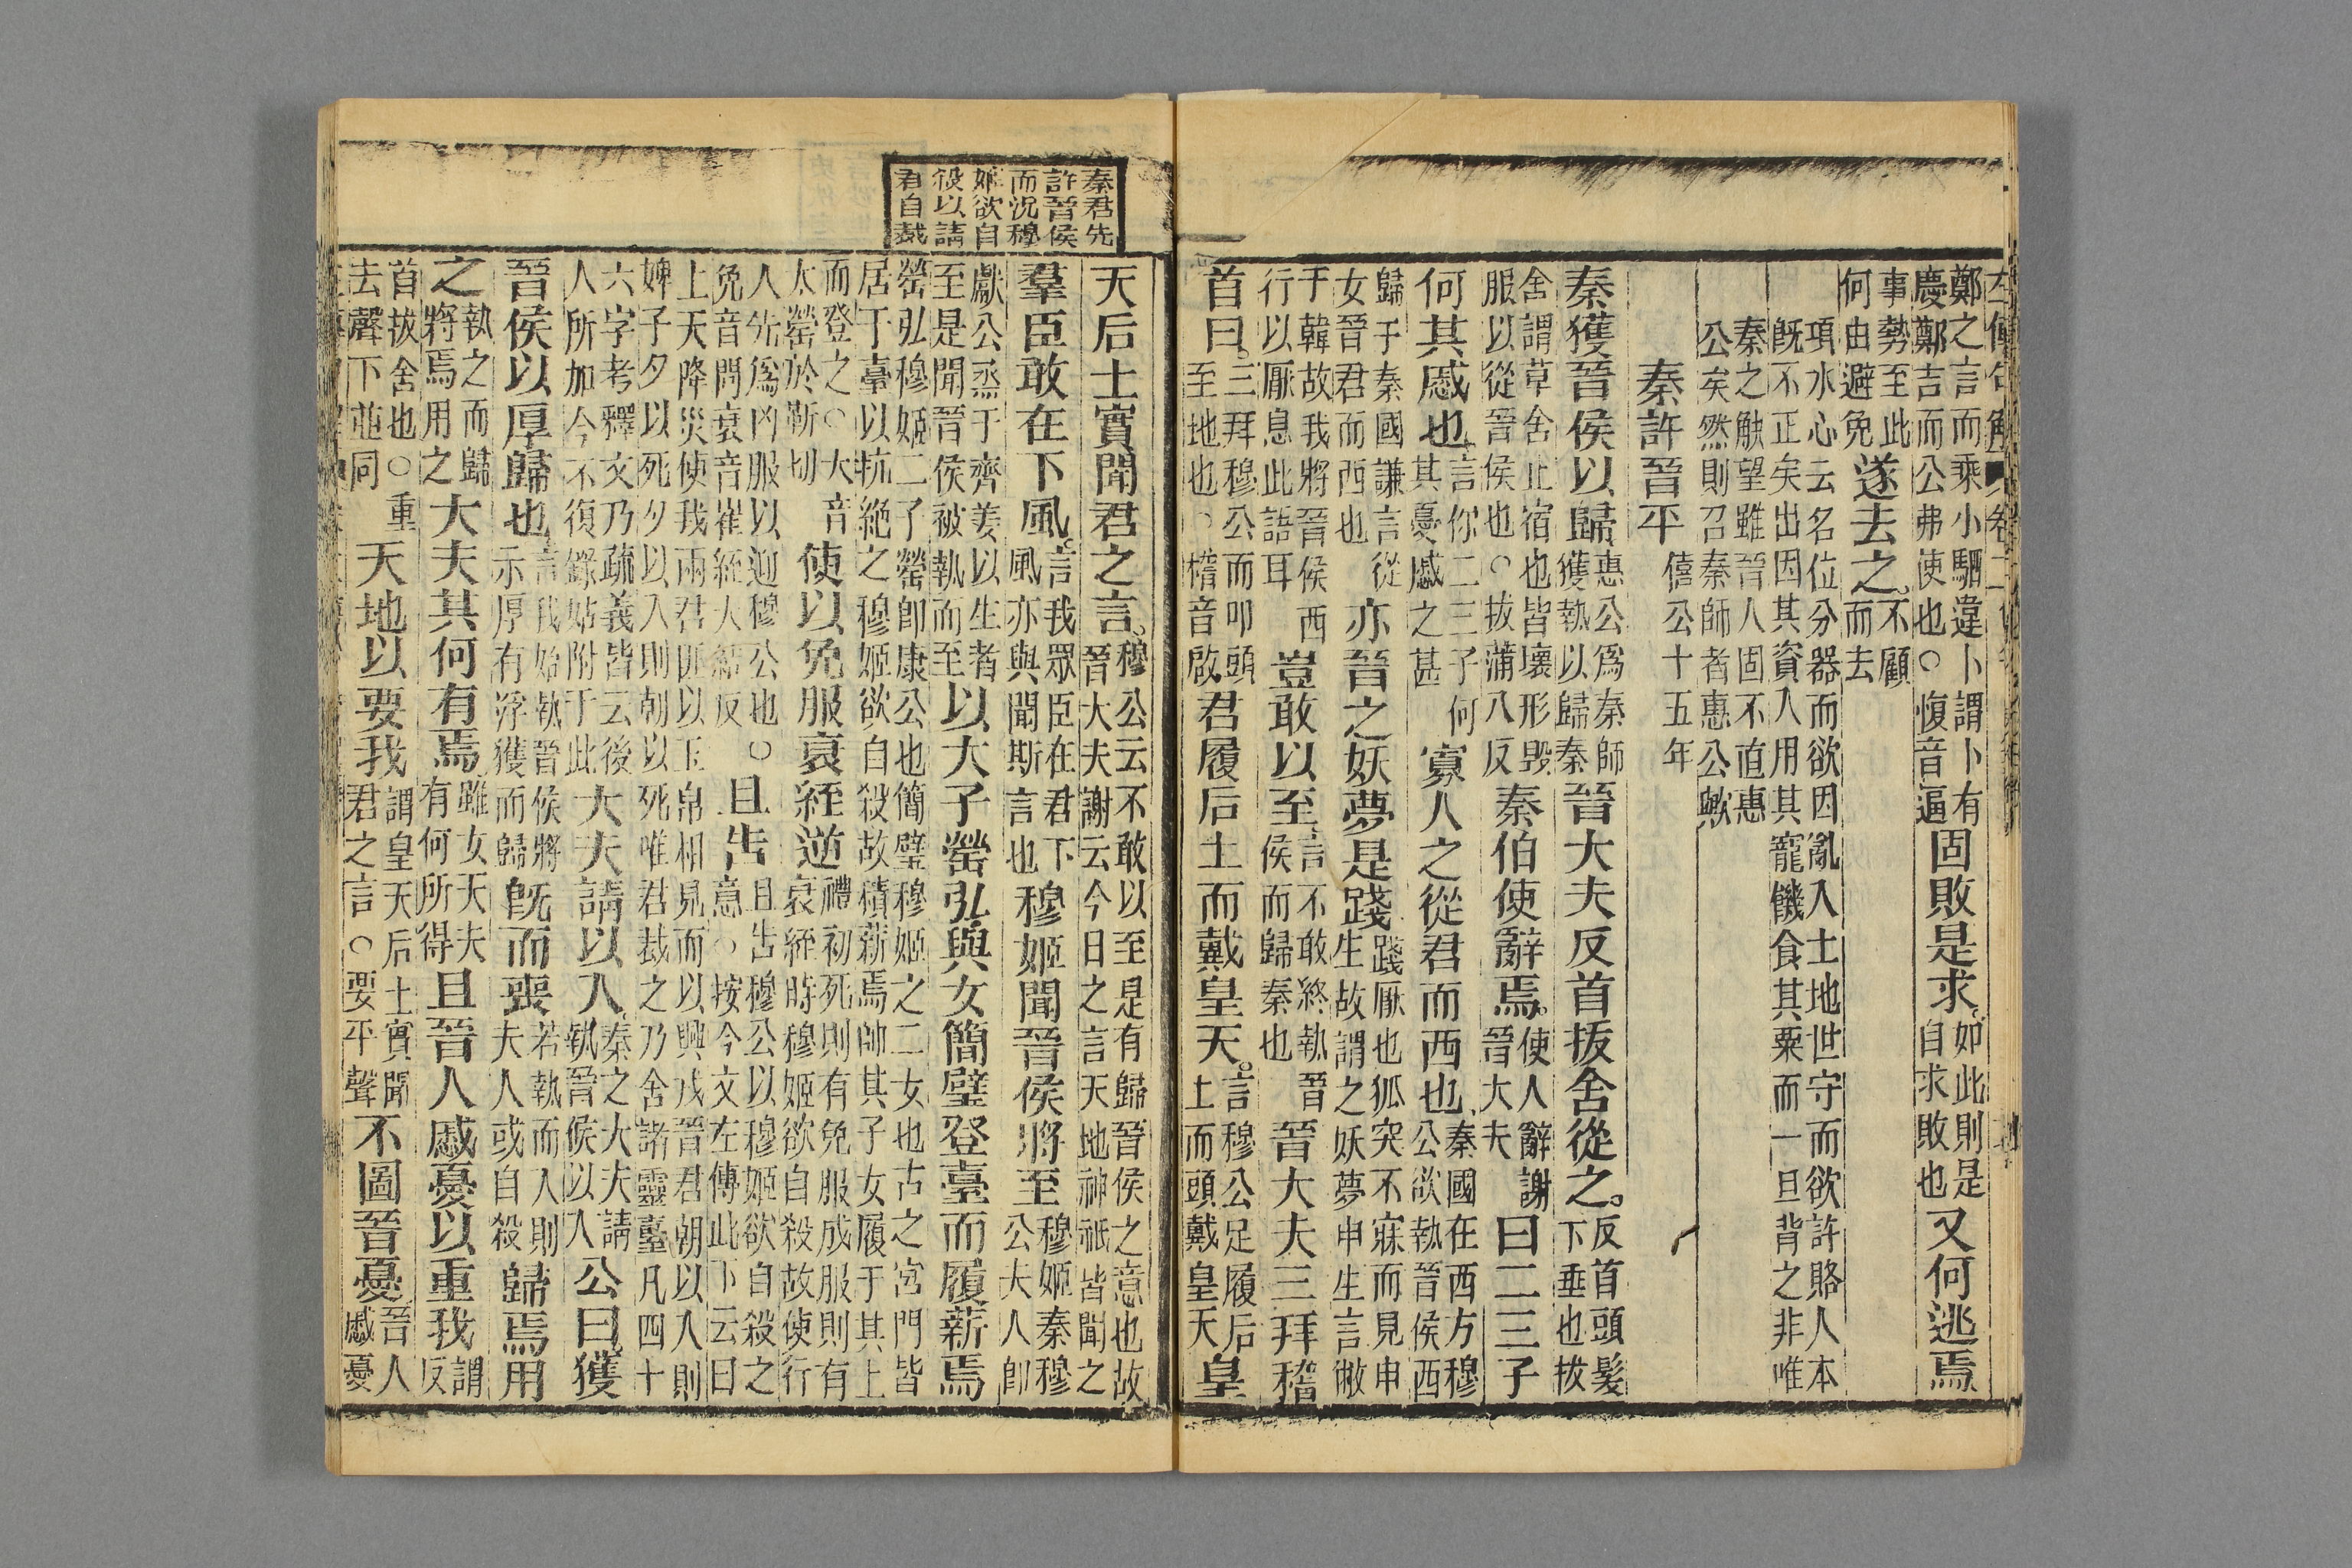 左傳句解 卷二
鄭之言而乘小駟違卜謂卜有慶鄭吉而公弗使也○愎音逼固敗是求如此則是自求敗也又何逃焉
事勢至此何由避免遂去之不顧而去
項水心云名位分器而欲因亂入土地世守而欲許賂人本
旣不正矣出因其資入用其寵饑食其粟而一旦背之非唯
秦之觖望雖晉人固不直惠
公矣然則召秦師者惠公歟
秦許晉平 僖公十五年
秦獲晉侯以歸惠公爲秦師獲執以歸秦晉大夫反首拔舍從之。反首頭髮下垂也拔
舍謂草舍止宿也皆壞形毀服以從晉侯也○拔蒲八反秦伯使辭焉。使人辭謝晉大夫曰二三子
何其慼也言你二三子何其憂慼之甚寡人之從君而西也秦國在西方穆公欲執晉侯西
歸于秦國謙言從女晉君而西也亦晉之妖夢是踐踐厭也狐突不寐而見申生故謂之妖夢申生言敝
于韓故我將晉侯西行以厭息此語耳豈敢以至言不敢終執晉侯而歸秦也晉大夫三拜稽
首曰。三拜穆公而叩頭至地也○稽音啟君履后土而戴皇天。言穆公足履后土而頭戴皇天皇
秦君先
許晉侯
而況穆
姬欲自
殺以請
君自裁
天后土實聞君之言。穆公云不敢以至是有歸晉侯之意也故晉大夫謝云今日之言天地神祇皆聞之
羣臣敢在下風。言我眾臣在君下風亦與聞斯言也穆姬聞晉侯將至穆姬秦穆公夫人卽
獻公烝于齊姜以生者至是聞晉侯被執而至以大子罃弘與女簡璧登臺而履薪焉
罃弘穆姬二子罃卽康公也簡璧穆姬之二女也古之宮門皆居于臺以抗絕之穆姬欲自殺故積薪焉帥其子女履于其上
而登之○大音太罃於靳切使以免服衰絰逆禮初死則有免服成服則有衰絰時穆姬欲自殺故使行
人先爲凶服以迎穆公也○免音問衰音崔絰大結反且告且告穆公以穆姬欲自殺之意○按今文左傳此下云曰
上天降災使我兩君匪以玉帛相見而以興戎晉君朝以入則婢子夕以死夕以入則朝以死唯君裁之乃舍諸靈臺凡四十
六字考釋文乃疏義皆云後人所加今不復錄姑附于此大夫請以入秦之大夫請執晉侯以入公曰獲
晉侯以厚歸也言我始執晉侯將示厚有浮獲而歸旣而喪若執而入則夫人或自殺歸焉用
之執之而歸將焉用之大夫其何有焉雖女大夫有何所得且晉人慼憂以重我謂反
首拔舍也○重去聲下並同天地以要我謂皇天后土實聞君之言○要平聲不圖晉憂晉人慼憂